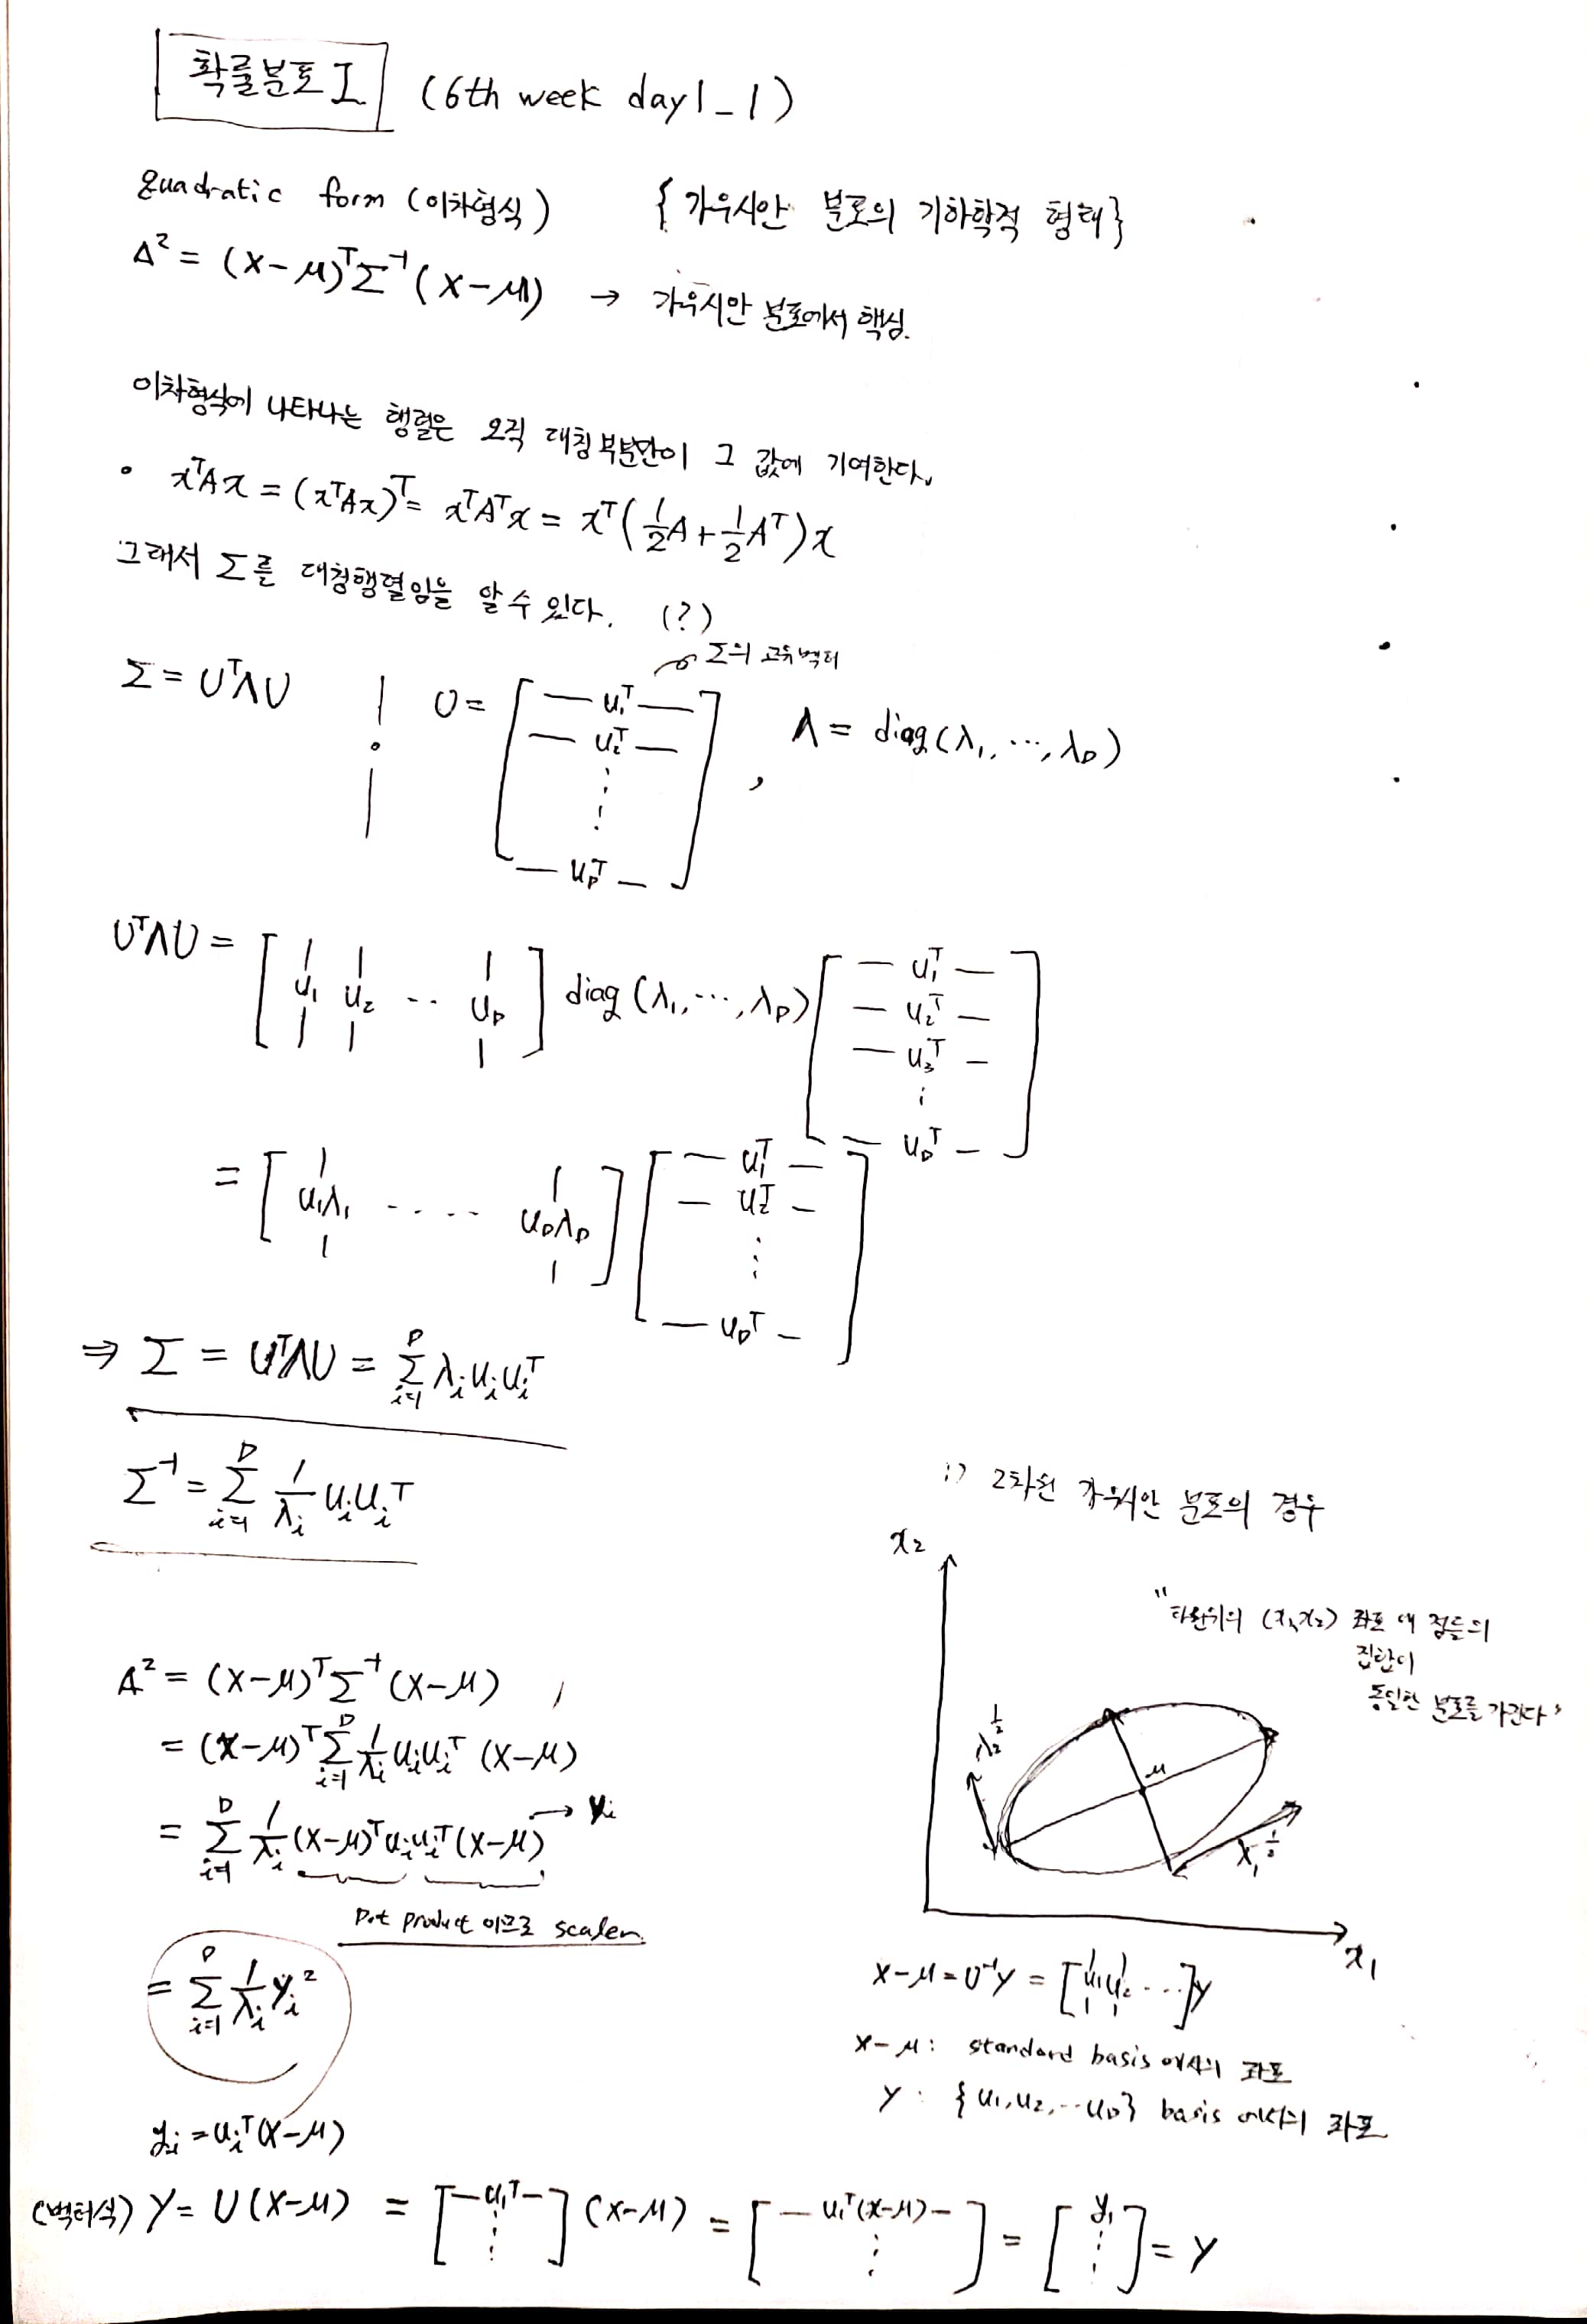 확률분포 I (6th week day1_1)
quadratic form (이차형식) {가우시안 분포의 기하학적 형태}
Δ² = (x-μ)ᵀΣ⁻¹(x-μ) → 가우시안 분포에서 핵심.
이차형식에 나타나는 행렬은 오직 대칭부분만이 그 값에 기여한다.
• xᵀAx = (xᵀAx)ᵀ = xᵀAᵀx = xᵀ(½A + ½Aᵀ)x
그래서 Σ를 대칭행렬임을 알 수 있다. (?)
Σ의 고유벡터
Σ = UᵀΛU U = [ — u₁ᵀ — — u₂ᵀ — ⋮ — u_Dᵀ — ] , Λ = diag(λ₁, ⋯, λ_D)
UᵀΛU = [ u₁ u₂ ‥ u_D ] diag(λ₁, ⋯, λ_D) [ — u₁ᵀ — — u₂ᵀ — — u₃ᵀ — ⋮ — u_Dᵀ — ]
= [ u₁λ₁ ‥‥ u_Dλ_D ] [ — u₁ᵀ — — u₂ᵀ — ⋮ — u_Dᵀ — ]
⇒ Σ = UᵀΛU = Σ_{i=1}^D λᵢuᵢuᵢᵀ
Σ⁻¹ = Σ_{i=1}^D 1/λᵢ uᵢuᵢᵀ
Δ² = (x-μ)ᵀΣ⁻¹(x-μ) ,
= (x-μ)ᵀ Σ_{i=1}^D 1/λᵢ uᵢuᵢᵀ (x-μ)
= Σ_{i=1}^D 1/λᵢ (x-μ)ᵀuᵢuᵢᵀ(x-μ) → yᵢ
Dot product 이므로 scaler.
= Σ_{i=1}^D 1/λᵢ yᵢ²
yᵢ = uᵢᵀ(x-μ)
2차원 가우시안 분포의 경우
x₂
"타원위의 (x₁,x₂) 좌표 내 점들의
집합이
동일한 분포를 가진다"
λ₂^½
μ
λ₁^½
x₁
x-μ = U⁻¹y = [ u₁ u₂ ⋯ ]y
x-μ : standard basis 에서의 좌표
y : {u₁, u₂, ‥u_D} basis 에서의 좌표
(벡터식) Y = U(x-μ) = [ —u₁ᵀ— ⋮ ] (x-μ) = [ — u₁ᵀ(x-μ) — ⋮ ] = [ y₁ ⋮ ] = Y